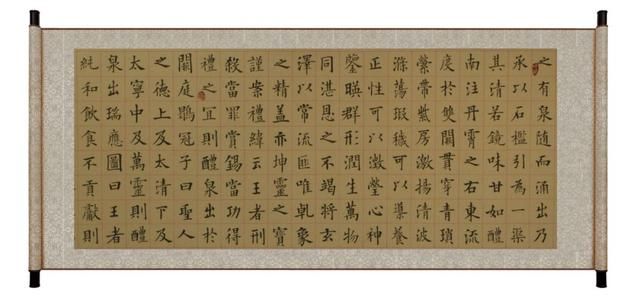 之有泉随而涌出乃
承以石檻引為一渠
其清若鏡味甘如醴
南注丹霄之右東流
度於雙闕貫穿青瑣
縈帶紫房激揚清波
滌蕩瑕穢可以導養
正性可以澂瑩心神
鑒暎群形潤生萬物
同湛恩之不竭將玄
澤以常流匪唯乹象
之精盖亦坤靈之寶
謹案禮緯云王者刑
殺當罪賞錫當功得
禮之宜則醴泉出於
闕庭鶡冠子曰聖人
之德上及太清下及
太寧中及萬靈則醴
泉出瑞應圖曰王者
純和飲食不貢獻則